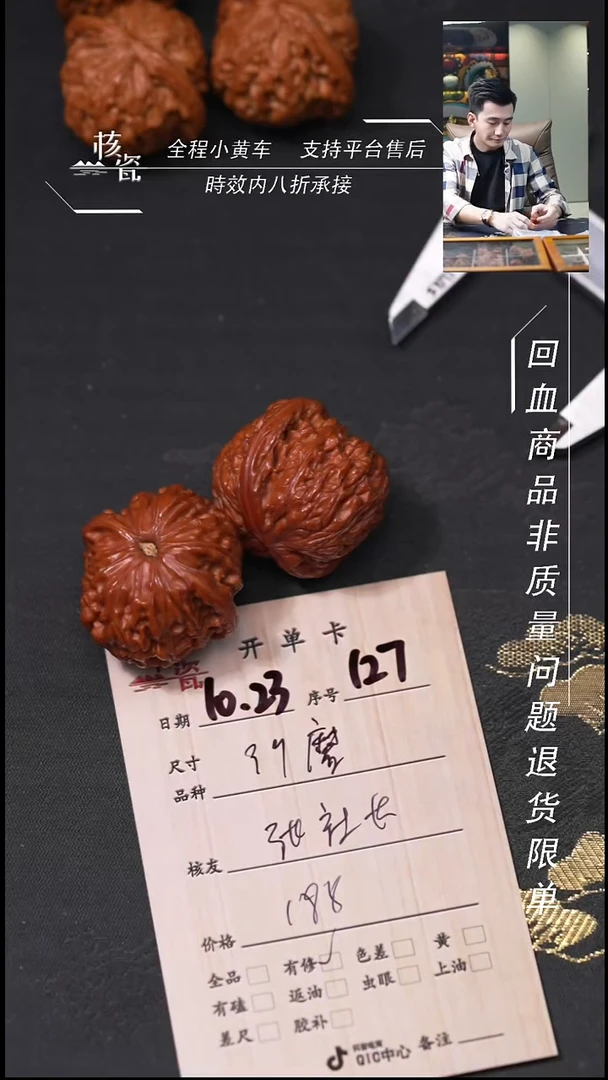 核瓷
全程小黄车 支持平台售后
時效内八折承接
回血商品非质量问题退货限单
开单卡
日期 10.23 序号 127
尺寸
品种
核友 张社长
价格 198
全品 有修 色差 黄
有磕 返油 虫眼 上油
差尺 胶补
抖音电商
QIC中心 备注